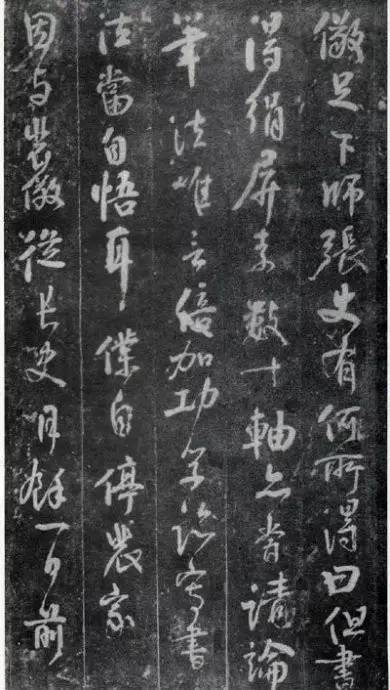 儆足下师張史有何所得曰但書
得絹屏素数十軸亦嘗請論
筆法唯言倍加功学临寫書
法當自悟耳僕自停裴家
因与裴儆從長史月餘一日前